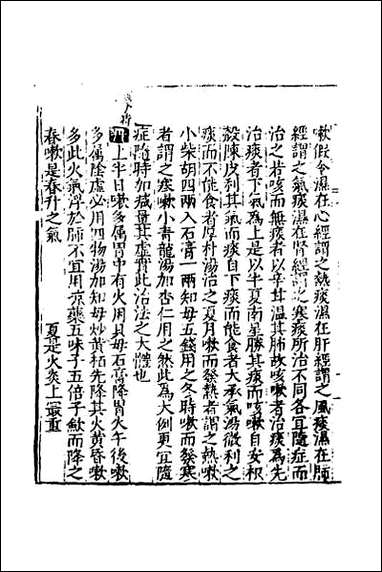 嗽假令濕在心經謂之熱痰濕在肝經謂之風痰濕在肺
經謂之氣痰濕在腎經謂之寒痰所治不同各宜隨症而
治之若咳而無痰者以辛甘温其肺故咳嗽者治痰爲先
治痰者下氣爲上是以半夏南星勝其痰而咳嗽自安枳
殼陳皮利其氣而痰自下痰而能食者大承氣湯微利之
痰而不能食者厚朴湯治之夏月嗽而發熱者謂之熱嗽
小柴胡四兩入石膏一兩知母五錢用之冬時嗽而發寒
者謂之寒嗽小青龍湯加杏仁用之然此爲大例更宜隨
症隨時加減量其虛實此治法之大體也
丹上半日嗽多属胃中有火用貝母石膏降胃火午後嗽
多属陰虛必用四物湯加知母炒黄栢先降其火黄昏嗽
多此火氣浮於肺不宜用凉藥五味子五倍子歛而降之
春嗽是春升之氣 夏是火炎上最重